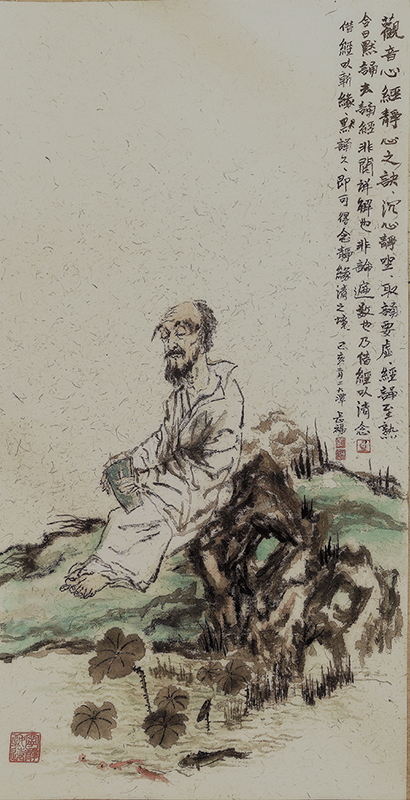 觀音心經靜心之訣、沉心靜坐、取誦要虛、經誦至熟
今日默誦去誦經非関詳解也非論遍数也乃借經以清念
借經以斬緣、默誦久、即可得念靜緣清之境 己亥